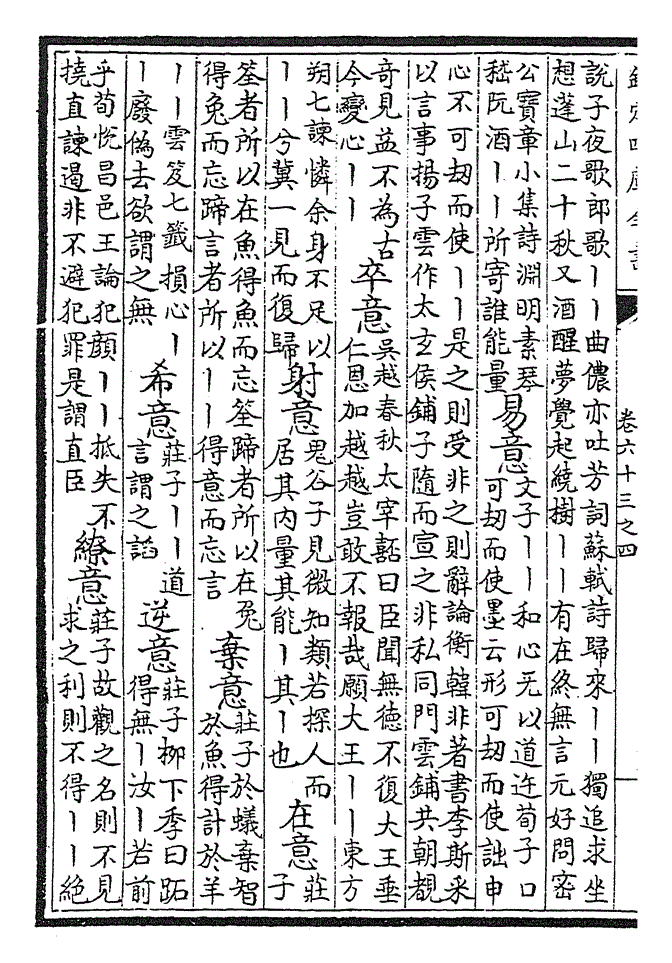 卷六十三之四
說子夜歌郎歌丨丨曲儂亦吐芳詞蘇軾詩歸來丨丨獨追求坐
想蓬山二十秋又酒醒夢覺起繞樹丨丨有在終無言元好問密
公寶章小集詩淵明素琴
嵇阮酒丨丨所寄誰能量
易意
文子丨丨和心无以道迕荀子口
可刼而使墨云形可刼而使詘申
心不可刼而使丨丨是之則受非之則辭論衡韓非著書李斯采
以言事揚子雲作太玄侯鋪子隨而宣之非私同門雲鋪共朝覩
奇見益不為古
今變心丨丨
卒意
吳越春秋太宰嚭曰臣聞無德不復大王垂
仁恩加越越豈敢不報哉願大王丨丨東方
朔七諫憐余身不足以
丨丨兮冀一見而復歸
射意
鬼谷子見微知類若探人而
居其内量其能丨其丨也
在意
莊
子
筌者所以在魚得魚而忘筌蹄者所以在兔
得兔而忘蹄言者所以丨丨得意而忘言
棄意
莊子於蟻棄智
於魚得計於羊
丨丨雲笈七籤損心丨
丨廢偽去欲謂之無
希意
莊子丨丨道
言謂之謟
逆意
莊子栁下季曰跖
得無丨汝丨若前
乎荀悅昌邑王論犯顏丨丨抵失不
撓直諫遏非不避犯罪是謂直臣
繚意
莊子故觀之名則不見
求之利則不得丨丨絕